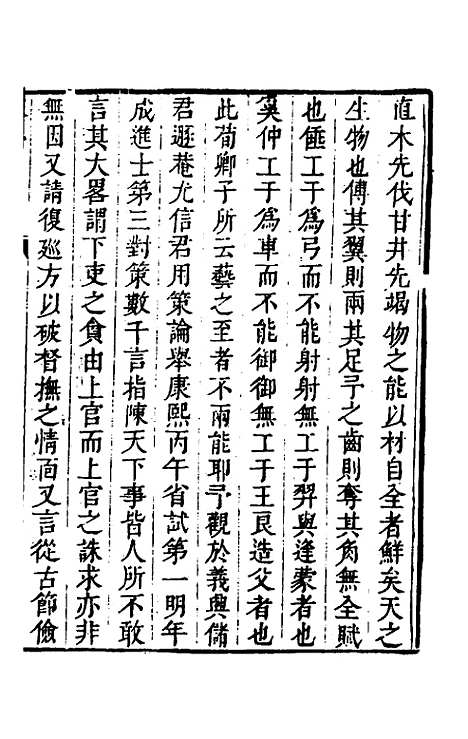 直木先伐甘井先竭物之能以材自全者鮮矣天之
生物也傅其翼則兩其足予之齒則奪其角無全賦
也倕工于爲弓而不能射射無工于羿與逢蒙者也
奚仲工于爲車而不能御御無工于王良造父者也
此荀卿子所云藝之至者不兩能耶予觀於義興儲
君遯菴尤信君用策論舉康熙丙午省試第一明年
成進士第三對策數千言指陳天下事皆人所不敢
言其大畧謂下吏之貪由上官而上官之誅求亦非
無因又請復廵方以破督撫之情面又言從古節儉